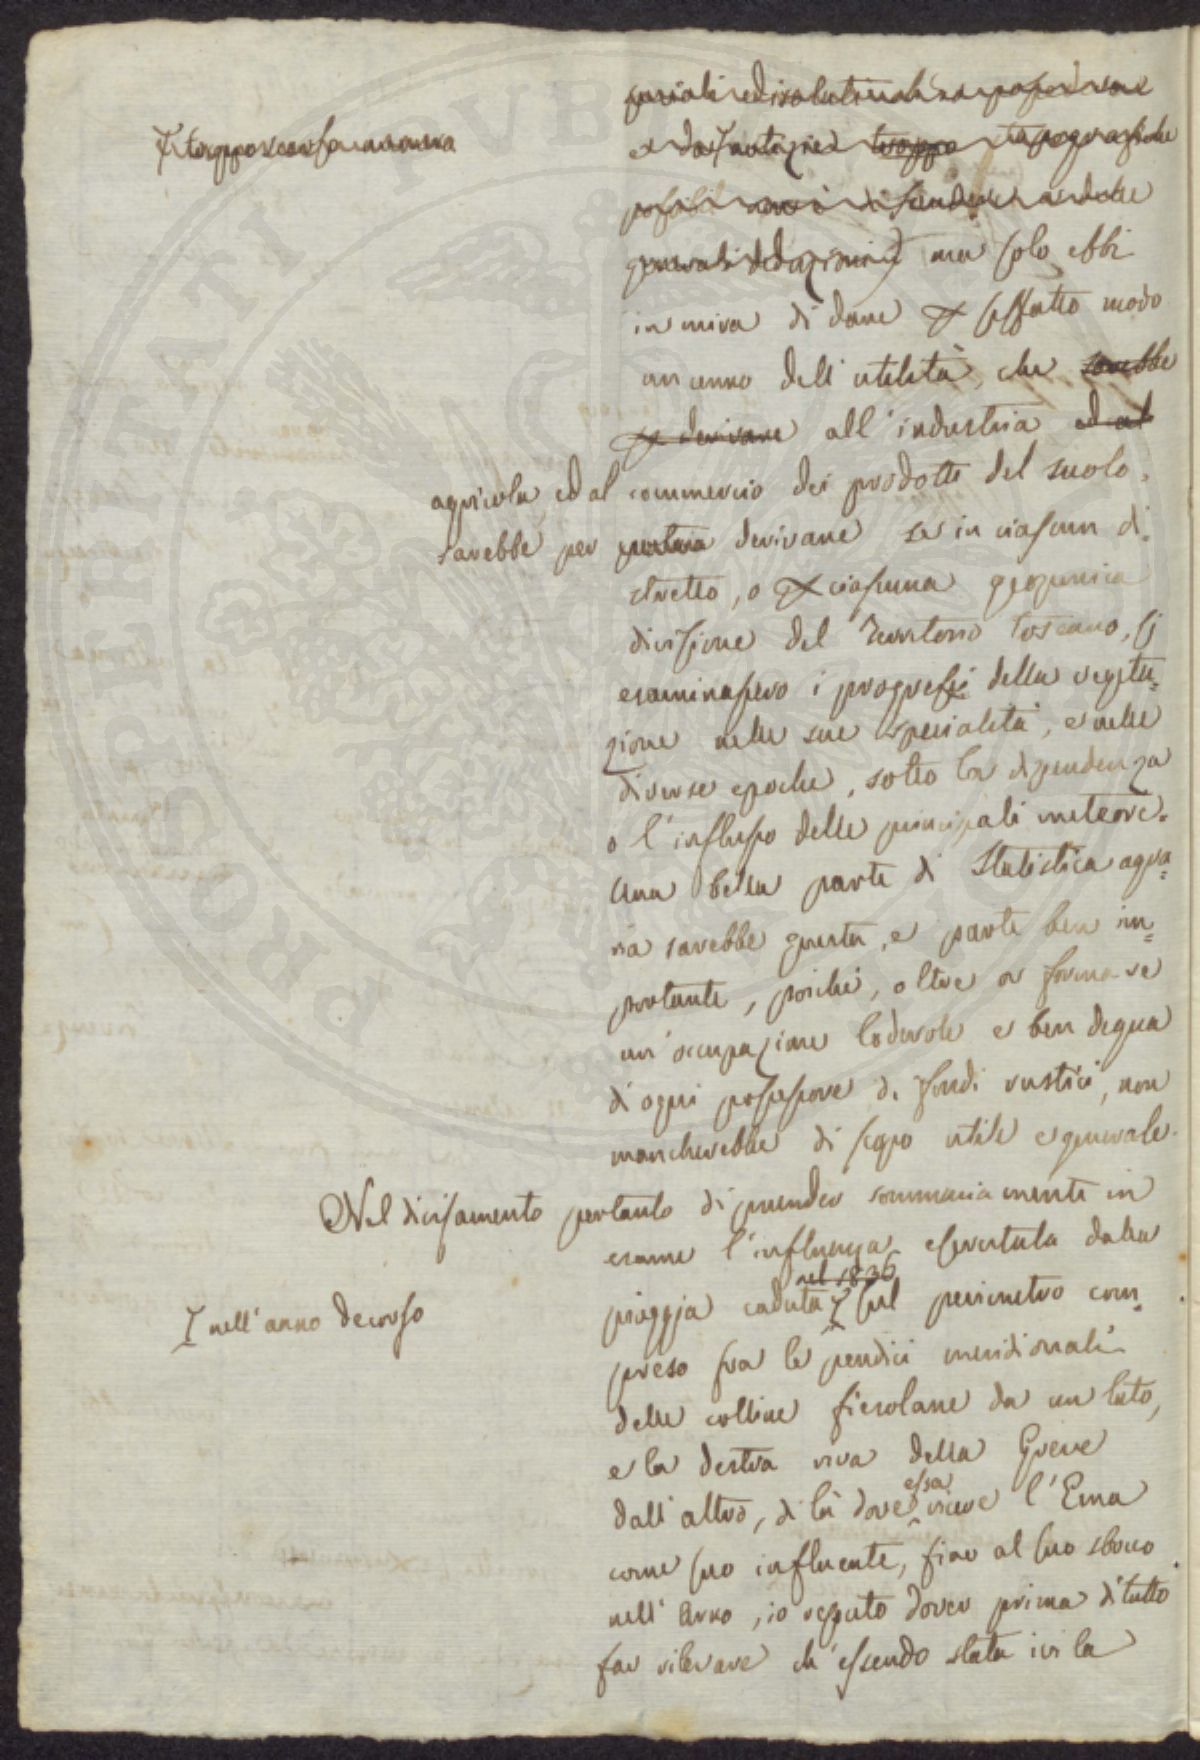 generali deduzioni) ma solo ebbi
in mira di dare p siffatto modo
un cenno dell'utilità, che sarebbe
p derivare all'industria ed al
agricola, ed al commercio dei prodotti del suolo,
sarebbe per derivare se in ciascun di-
stretto, o p ciascuna georgica
divisione del Territorio Toscano, si
esaminassero i progressi della vegeta=
zione nelle sue specialità, e nelle
diverse epoche, sotto la dipendenza
o l'influsso delle principali meteore.
Una bella parte di Statistica agra=
ria sarebbe questa, e parte ben im=
portante, poiché, oltre a formare
un'occupazione lodevole e ben degna
di ogni possessore di fondi rustici, non
mancherebbe di scopo utile e generale.
Nel divisamento pertanto di prender sommariamente in
esame l'influenza esercitata dalla
nel 1836
pioggia caduta sul perimetro com=
nell'anno decorso
preso fra le pendici meridionali
delle colline fiesolane da un lato,
e la destra riva della Greve
dall'altro, di là dove essa riceve l'Ema
come suo influente, fino al suo sbocco
nell'Arno, io reputo dover prima di tutto
far rilevare ch'essendo stata ivi la